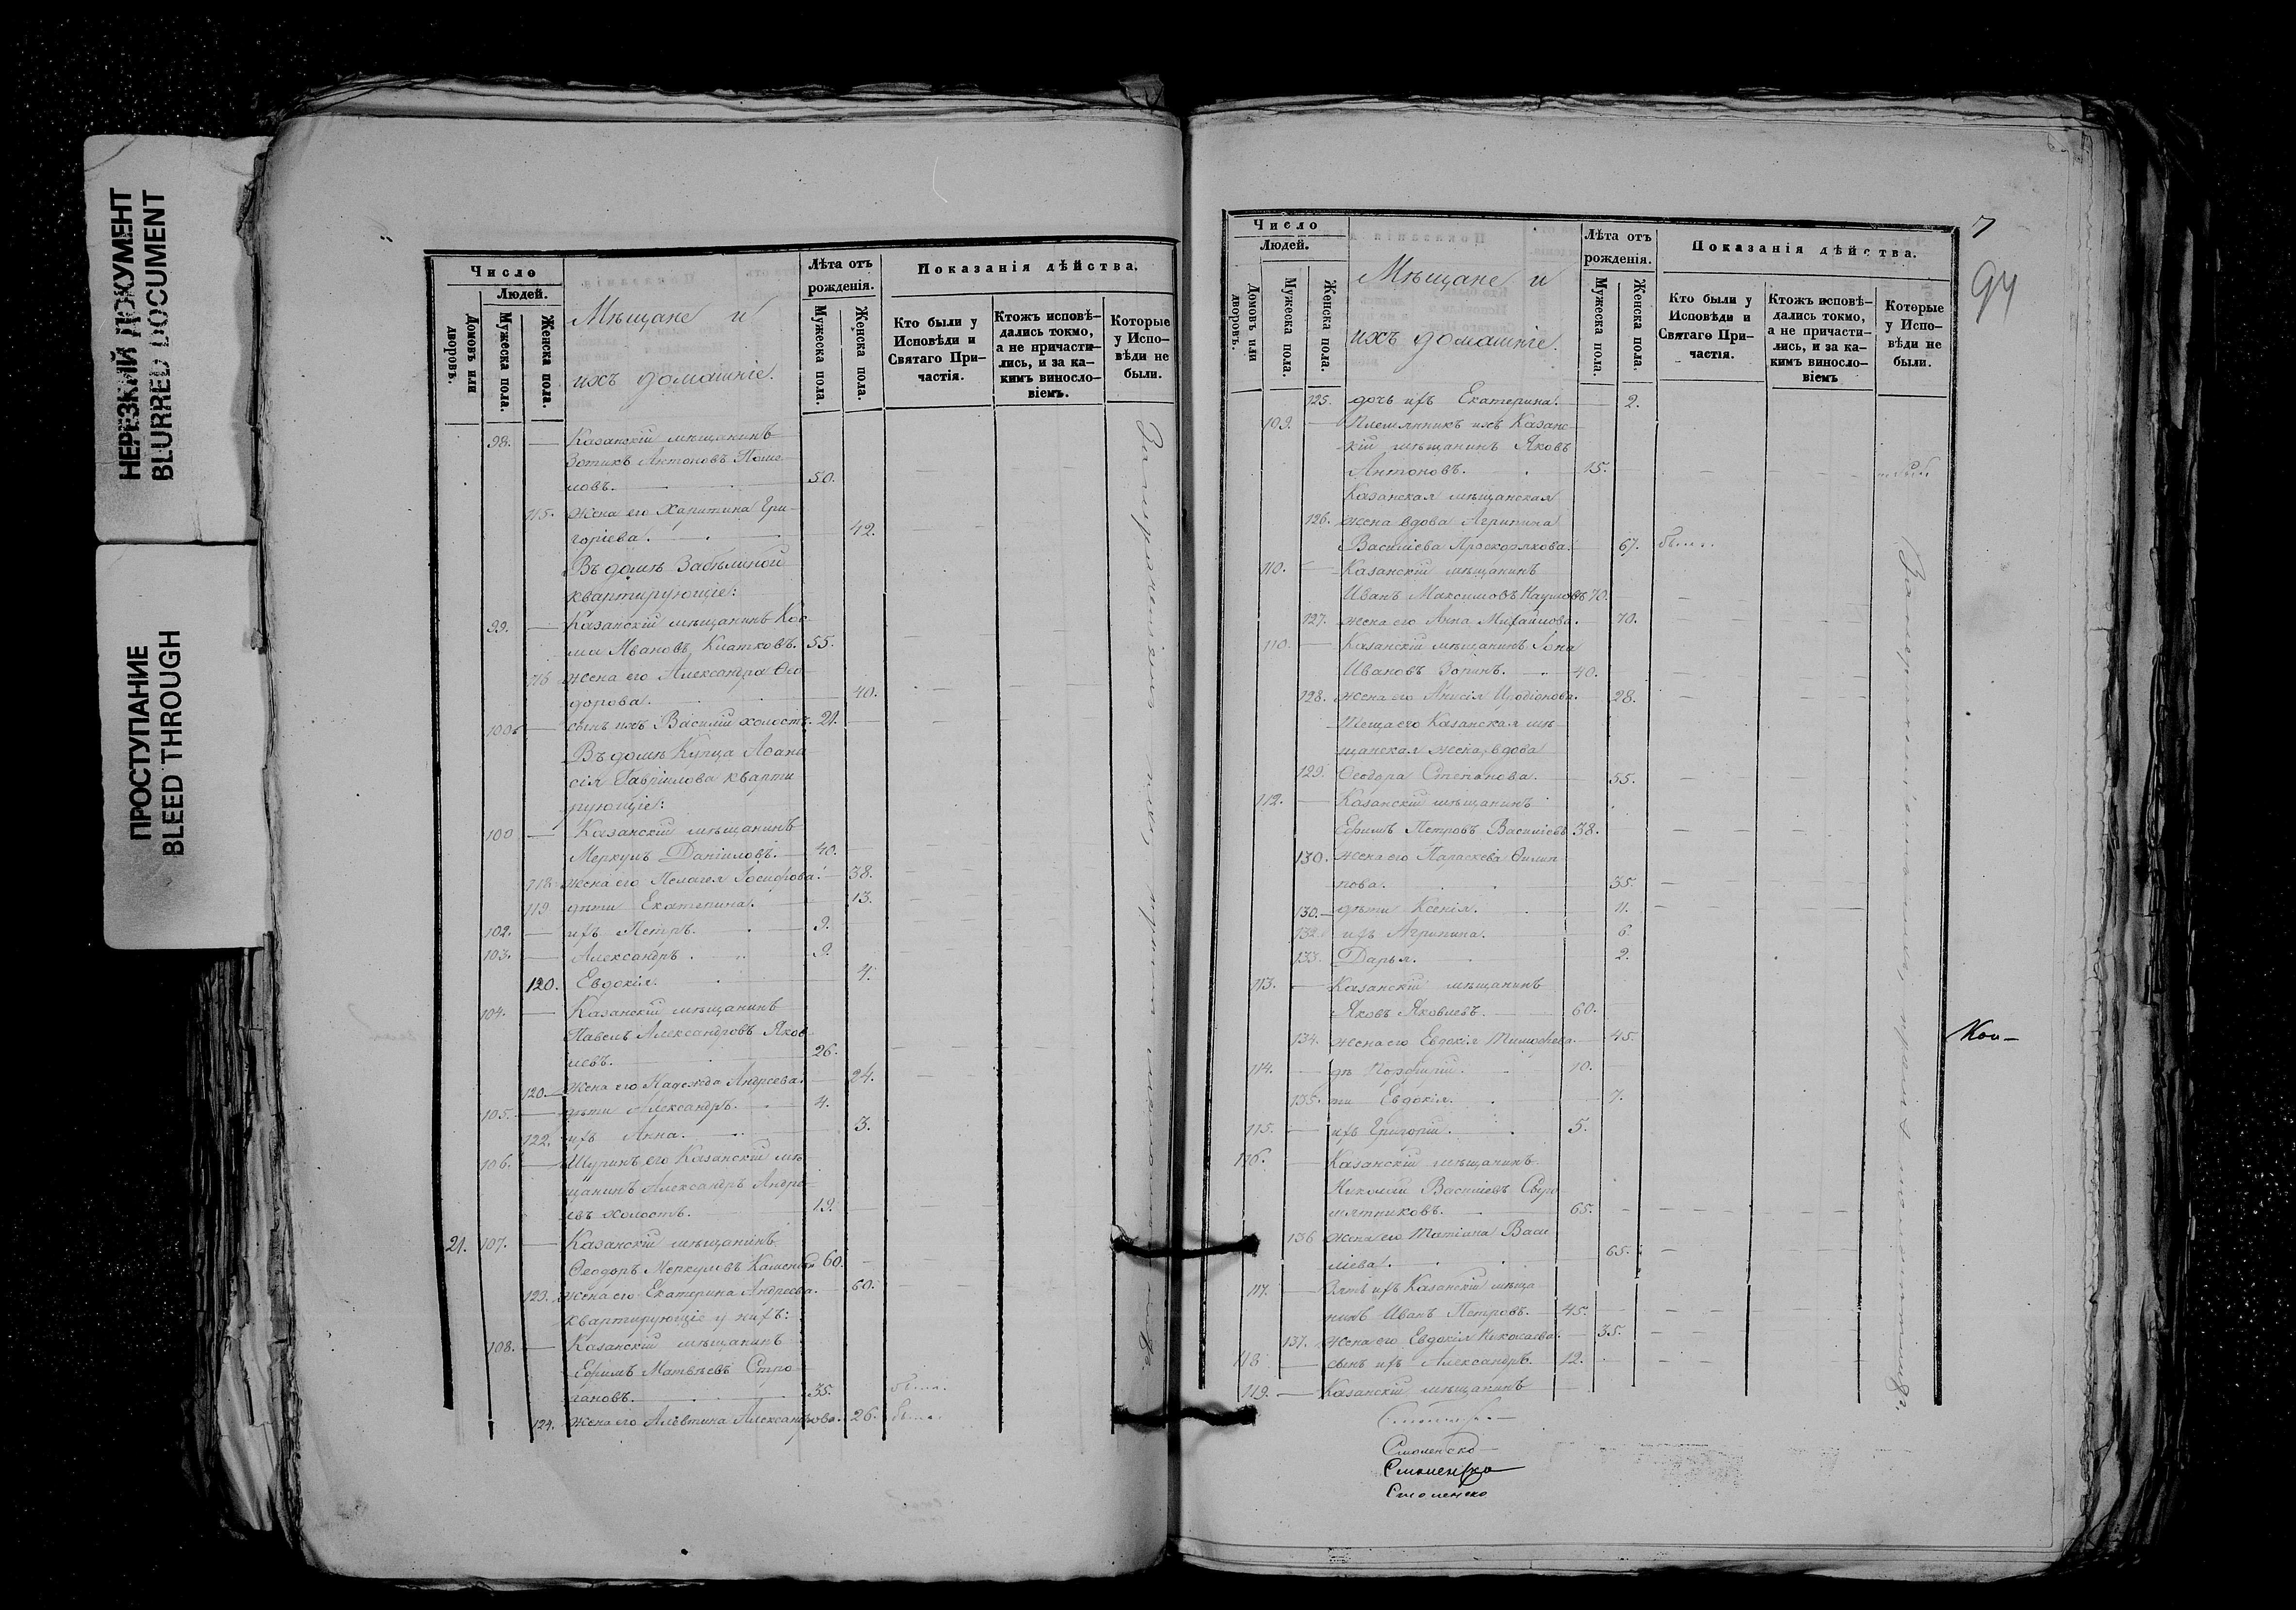 НЕРЕЗКИЙ ДОКУМЕНТ
BLURRED DOCUMENT
ПРОСТУПАНИЕ
BLEED THROUGH
Число
Людей.
Домовъ или дворовъ.
Мужеска пола.
Женска пола.
Мѣщане и
ихъ домашніе.
Лѣта отъ рожденія.
Мужеска пола.
Женска пола.
Показанія дѣйства.
Кто были у Исповѣди и Святаго Причастія.
Ктожъ исповѣдались токмо, а не причастились, и за какимъ винословіемъ.
Которые у Исповѣди не были.
98. — Казанскій мѣщанинъ
Зотикъ Антоновъ
ловъ. 50.
115. жена его Харитина Гри-
горіева. 42.
Въ домѣ Забѣлиной
квартирующіе:
99. — Казанскій мѣщанинъ Кос
ма Ивановъ 55.
116 жена его Александра Ѳео
дорова. 40.
100. — сынъ ихъ Василій холостъ. 21.
Въ домѣ Купца Аѳана
сія Гавріилова кварти
рующіе:
100 — Казанскій мѣщанинъ
Меркулъ Даніиловъ. 40.
118 жена его Пелагея Іосифова. 38.
119 дѣти Екатерина. 13.
102. — ихъ Петръ. 9.
103. — Александръ. 9.
120. Евдокія. 4.
104. — Казанскій мѣщанинъ
Павелъ Александровъ Яков
левъ. 26.
120. жена его Надежда Андреева. 24.
105. — дѣти Александръ. 4.
122. ихъ Анна. 3.
106. — Шуринъ его Казанскій мѣ
щанинъ Александръ Андре
евъ холостъ. 19.
21. 107. — Казанскій мѣщанинъ
Ѳеодоръ Меркуловъ 60.
123. жена его Екатерина Андреева. 60.
квартирующіе у нихъ:
108. — Казанскій мѣщанинъ
Ефимъ Матвѣевъ Стро
гановъ. 35.
124. жена его Алевтина Александрова. 26.
7
94
Число
Людей.
Домовъ или дворовъ.
Мужеска пола.
Женска пола.
Мѣщане и
ихъ домашніе.
Лѣта отъ рожденія.
Мужеска пола.
Женска пола.
Показанія дѣйства.
Кто были у Исповѣди и Святаго Причастія.
Ктожъ исповѣдались токмо, а не причастились, и за какимъ винословіемъ
Которые у Исповѣди не были.
125. дочь ихъ Екатерина. 2.
109. — Племянникъ ихъ Казанс
кій мѣщанинъ Яковъ
Антоновъ. 15.
Казанская мѣщанская
126. жена вдова Агрипина
Василіева 67.
110. — Казанскій мѣщанинъ
Иванъ Максимовъ Наумовъ 70.
127. жена его Анна Михайлова. 70.
110. — Казанскій мѣщанинъ Іона
Ивановъ Зопинъ. 40.
128. жена его Анисія Иродіонова. 28.
Теща его Казанская мѣ
щанская жена, вдова
129. Ѳеодора Степанова. 55.
112. — Казанскій мѣщанинъ
Ефимъ Петровъ Василіевъ 38.
130. жена его Параскева Филип
пова. 35.
130. — дѣти Ксенія. 11.
132. ихъ Агрипина. 6
133. Дарья. 2.
113. — Казанскій мѣщанинъ
Яковъ Яковлевъ. 60.
134. жена его Евдокія Тимофеева. 45.
114. — дѣ Порфирій. 10.
135. ти Евдокія. 7.
115. — ихъ Григорій. 5.
116. — Казанскій мѣщанинъ
Николай Василіевъ Сыро
мятниковъ. 65.
136 жена его Татіана Васи
ліева. 65.
117. — Зять ихъ Казанскій мѣща
нинъ Иванъ Петровъ. 45.
137. жена его Евдокія Николаева. 35.
118 — сынъ ихъ Александръ. 12.
119. — Казанскій мѣщанинъ
Смоленско
Смоленско
Смоленско